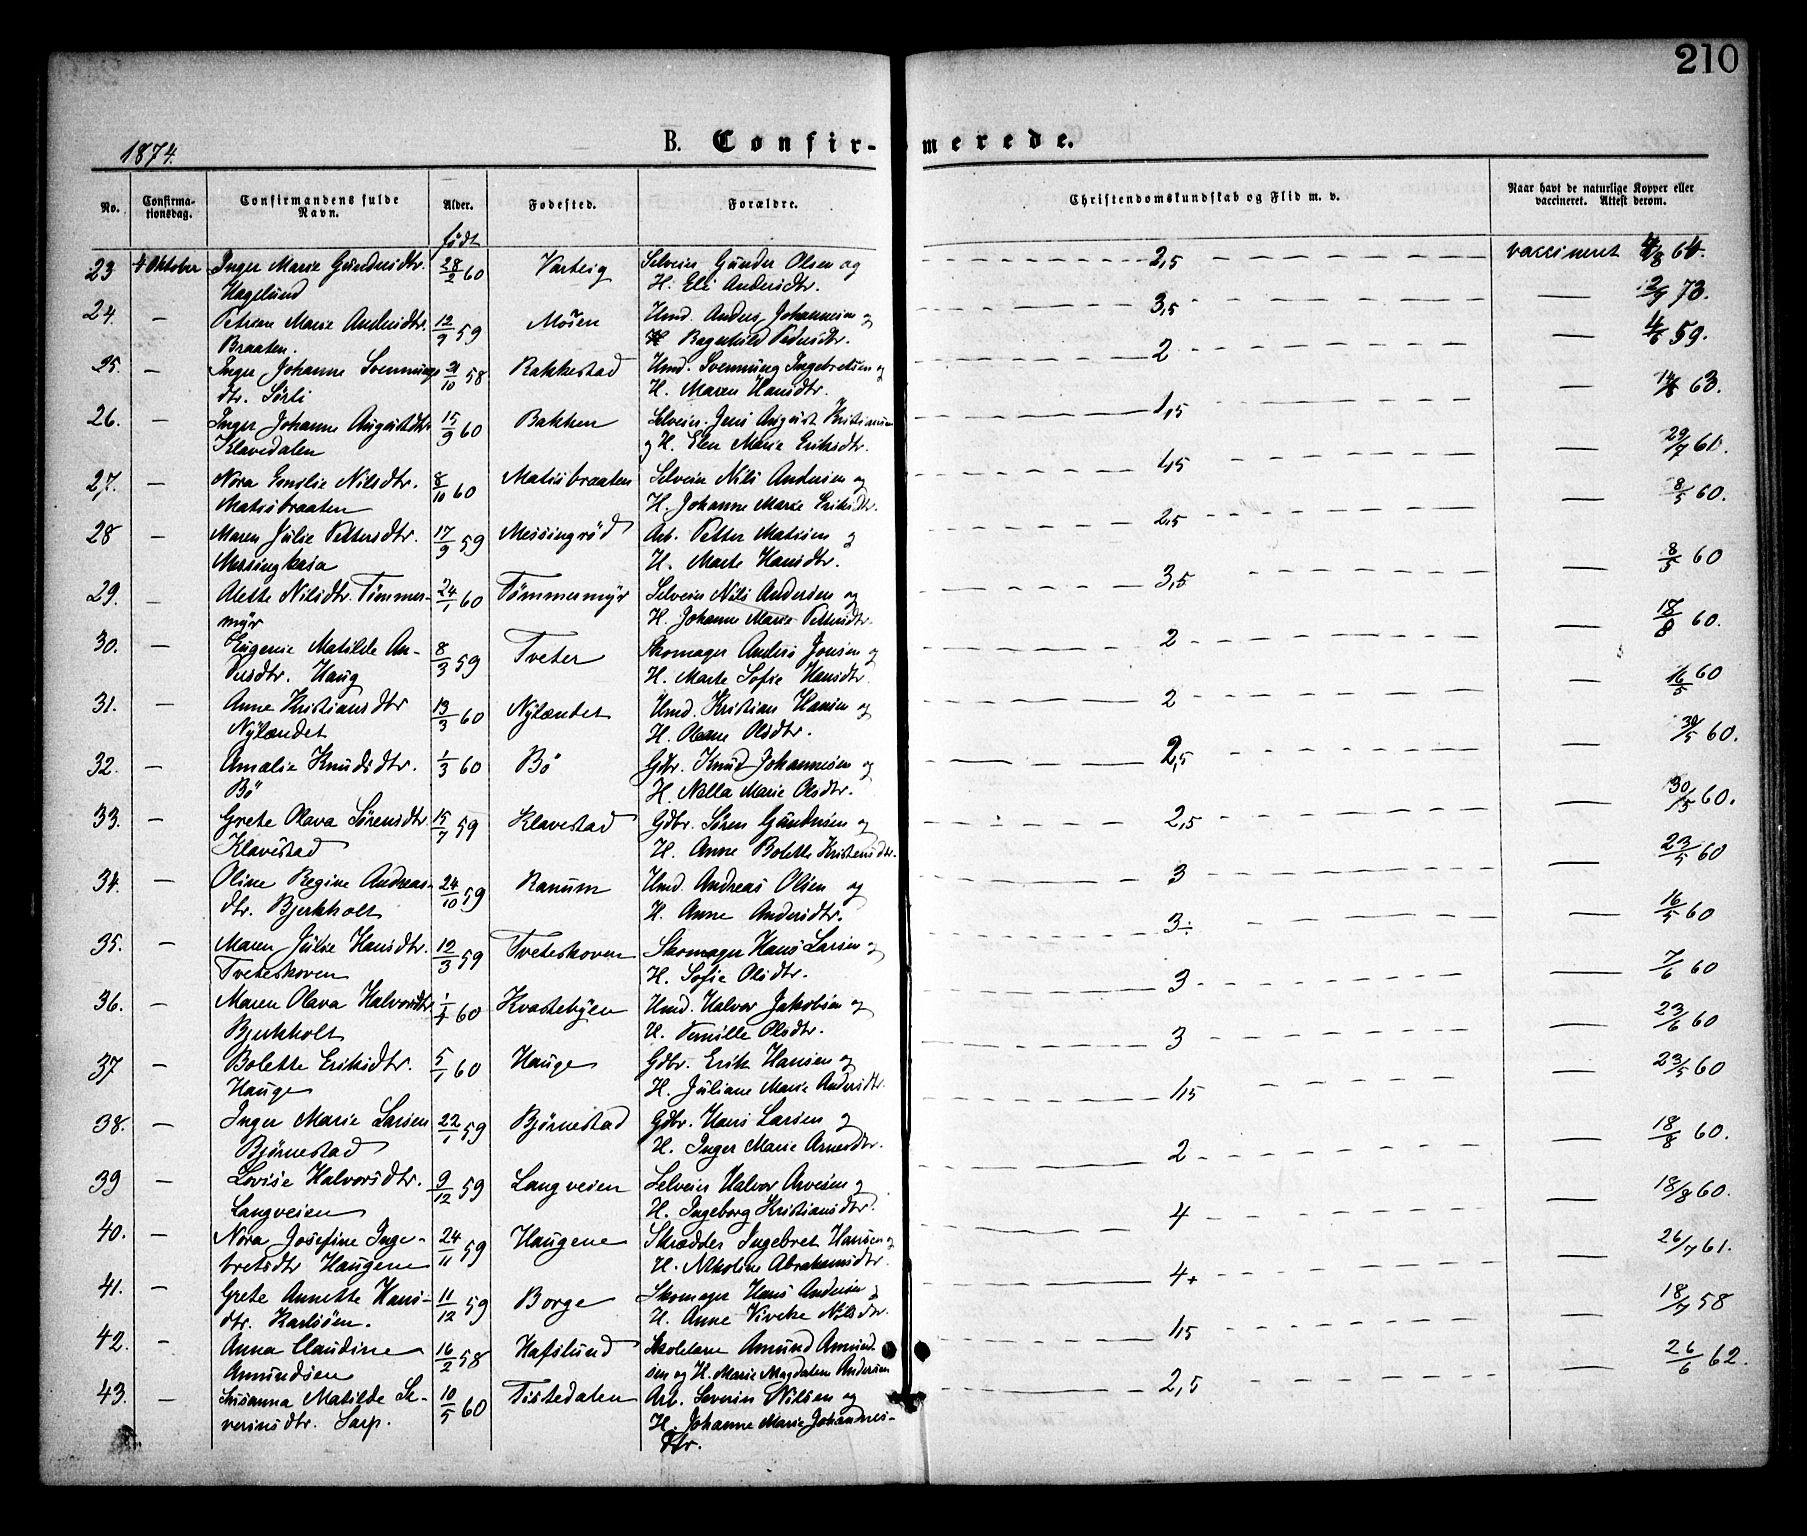 210
1874.
B. Confir- merede.
No. Confirma-tionsdag. Confirmandens fulde Navn. Alder. Fødested. Forældre. Christendomskundskab og Flid m. v. Naar havt de naturlige Kopper eller vaccineret. Attest derom.
født
23 4 Oktober Inger Marie Gundersdtr. 28/2 60 Varteig Selveier Gunder Olsen og 2,5 vaccineret 4/8 64.
Hagelund H. Eli Andersdtr.
24. — Petrine Marie Andersdtr. 12/9 59 Mosen Hmd. Anders Johannesen og 3,5 — 2/9 73.
Braaten. H. Ragnhild Pedersdtr.
25. — Inger Johanne Svennungs 31/10 58 Rakkestad Hmd. Svennung Ingebretsen og 2 — 4/6 59.
dtr. Sørli H. Maren Hansdtr.
26. — Inger Johanne Augustdtr. 15/9 60 Bakken Selveier Jens August Kristiansen 1,5 — 63.
Klavedalen og H. Elen Marie Eriksdtr.
27. — Nora Emilie Nilsdtr. 8/10 60 Matisbraaten Selveier Nils Andersen og 1,5 — 29/7 61.
Matisbraaten H. Johanne Marie Eriksdtr.
28 — Maren Julie Pettersdtr. 17/9 59 Messingrød Arb. Petter Matisen og 2,5 — 8/5 60.
Messingkasa H. Marte Hansdtr.
29. — Alette Nilsdtr. Tømmer- 24/1 60 Tømmermyr Selveier Nils Andersen og 3,5 — 8/5 60
myr H. Johanne Marie Pettersdtr.
30. — Eugenie Matilde An- 8/3 59 Tveter Skomager Anders Jonsen og 2 — 18/8 60.
dersdtr. Haug H. Marte Sofie Hansdtr.
31. — Anne Kristiansdtr 13/3 60 Nylændet Hmd. Kristian Hansen og 2 — 16/5 60
Nylændet H. Olsdtr.
32. — Amalie Knudsdtr. 1/3 60 Bø Gdbr. Knud Johannesen og 2,5 — 30/5 60.
Bø H. Nella Marie Olsdtr.
33. — Grete Olava Sørensdtr 15/7 59 Klavestad Gdbr. Søren Gundersen og 2,5 — 30/5 60.
Klavestad H. Anne Bolette Kristensdtr.
34. — Oline Regine Andreas- 24/10 59 Ranum Hmd. Andreas Olsen og 3 — 23/5 60
dtr. Bjerkholt H. Anne Andersdtr.
35. — Maren Julie Hansdtr. 12/3 59 Tveteskoven Skomager Hans Larsen og 3÷ — 16/5 60
Tveteskoven H. Sofie Olsdtr.
36. — Maren Olava Halvorsdtr. 1/4 60 Kvastebyen Hmd. Halvor Jakobsen og 3 — 7/6 60
Bjerkholt H. Pernille Olsdtr.
37 — Bolette Eriksdtr. 5/1 60 Hauge Gdbr. Erik Hansen og 3 — 23/6 60
Hauge H. Juliane Marie Andersdtr.
38. — Inger Marie Larsen 22/1 59 Bjørnestad Gdbr. Hans Larsen og 1,5 — 23/5 60
Bjørnestad H. Inger Marie Arnesdtr.
39 — Lovise Halvorsdtr. 9/12 59 Langveien Selveier Halvor Arvesen og 2 — 18/8 60.
Langveien H. Ingeborg Kristiansdtr.
40. — Nora Josefine Inge- 24/11 59 Haugene Skrædder Ingebret Hansen og 4 — 18/8 60.
bretsdtr Haugene H. Nikoline Abrahamsdtr.
41. — Grete Annette Hans- 11/12 59 Borge Skomager Hans Andersen og 4+ — 26/7 61.
dtr. Karlsøen. H. Anne Viveke Nilsdtr.
42. — Anna Claudine 16/2 58 Hafslund Skolelærer Amund Amund- 1,5 — 18/7 58
Amundsen sen og H. Marie Magdalena Andersen
43. — Susanna Matilde Se- 10/5 60 Tistedalen Arb. Severin Nilsen og 2,5 — 26/6 62.
verinsdtr. Sarp. H. Johanne Marie Johannes-
dtr.